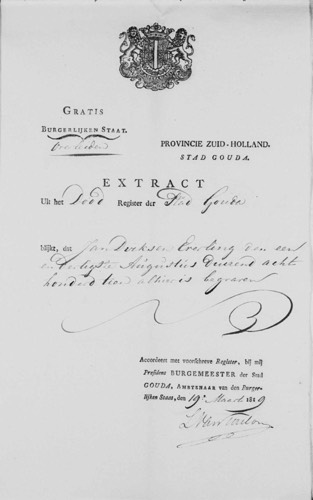 GRATIS
BURGERLIJKEN STAAT.
Overleden
PROVINCIE ZUID-HOLLAND.
STAD GOUDA.
EXTRACT
Uit het Dood Register der Stad Gouda
blijkt, dat Jan Dirksen Everling den een
en dertigste Augustus Duizend acht
honderd tien alhier is begraven
Accordeert met voorschreve Register, bij mij
Presideus BURGEMEESTER der Stad
GOUDA, AMBTENAAR van den Burger-
lijken Staat, den 19e Maart 1819